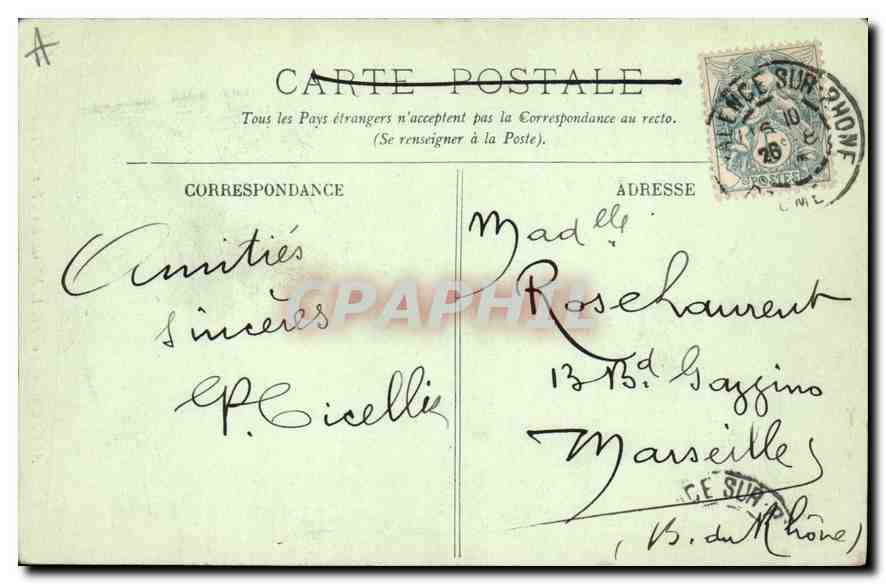 CARTE POSTALE
Tous les Pays étrangers n'acceptent pas la Correspondance au recto.
(Se renseigner à la Poste).
CORRESPONDANCE
ADRESSE
VALENCE SUR RHONE
10
26
5c
POSTES
Amitiés
sincères
P. Cicellie
Madelle
Rose Laurent
13 Bd. Gazzino
Marseille
(B. du Rhône)
CE SUR R
CPAPHIL